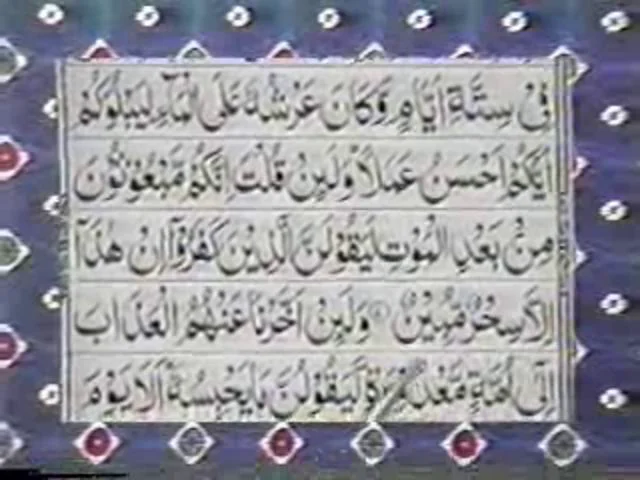 فِيْ سِتَّةِ اَيَّامٍ وَّكَانَ عَرْشُهٗ عَلَى الْمَآءِ لِيَبْلُوَكُمْ
اَيُّكُمْ اَحْسَنُ عَمَلًا وَلَىِٕنْ قُلْتَ اِنَّكُمْ مَّبْعُوْثُوْنَ
مِنْۢ بَعْدِ الْمَوْتِ لَيَقُوْلَنَّ الَّذِيْنَ كَفَرُوْٓا اِنْ هٰذَآ
اِلَّا سِحْرٌ مُّبِيْنٌ وَلَىِٕنْ اَخَّرْنَا عَنْهُمُ الْعَذَابَ
اِلٰٓى اُمَّةٍ مَّعْدُوْدَةٍ لَّيَقُوْلُنَّ مَا يَحْبِسُهٗ اَلَا يَوْمَ